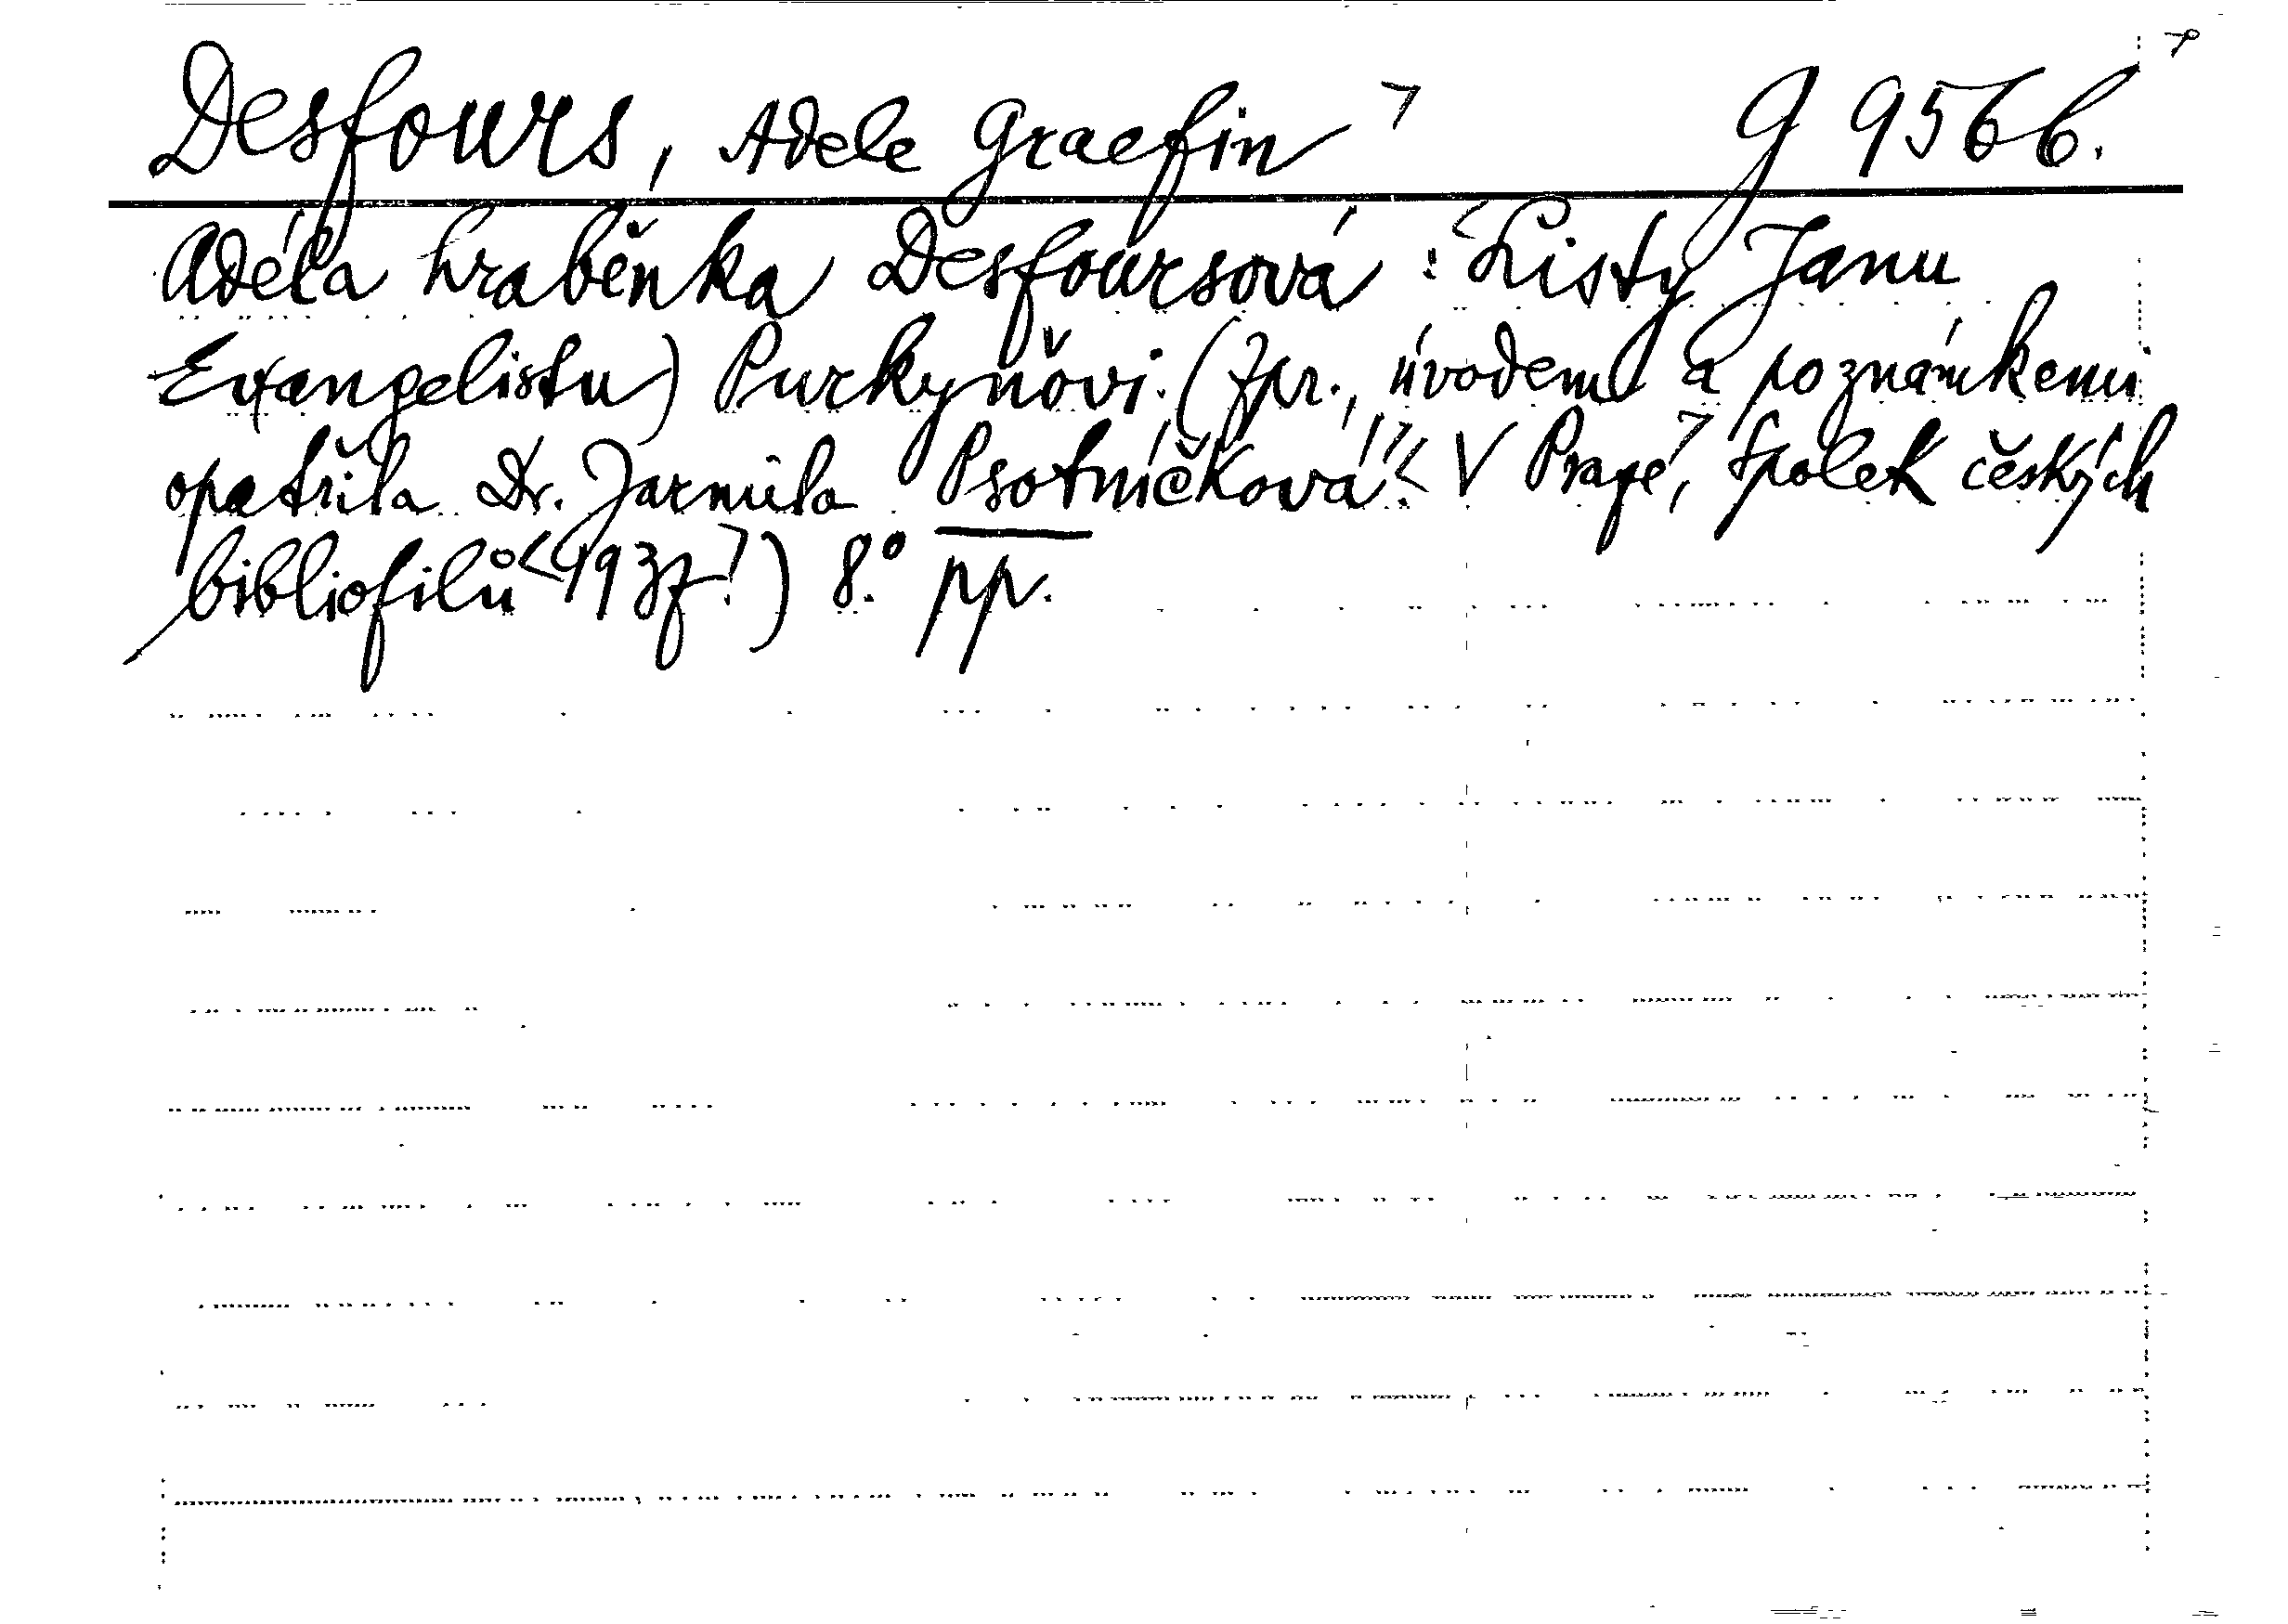 Desfours, Adele Graefin g 9566.
Adéla hraběnka Desfoursová : Listy Janu
Ev(angelistu) Purkyňovi. (Zpr., úvodem a poznámkemi
opatřila Dr. Jarmila Psotníčková. V Praze, Spolek českých
bibliofilů 1937.) 8.° pp.